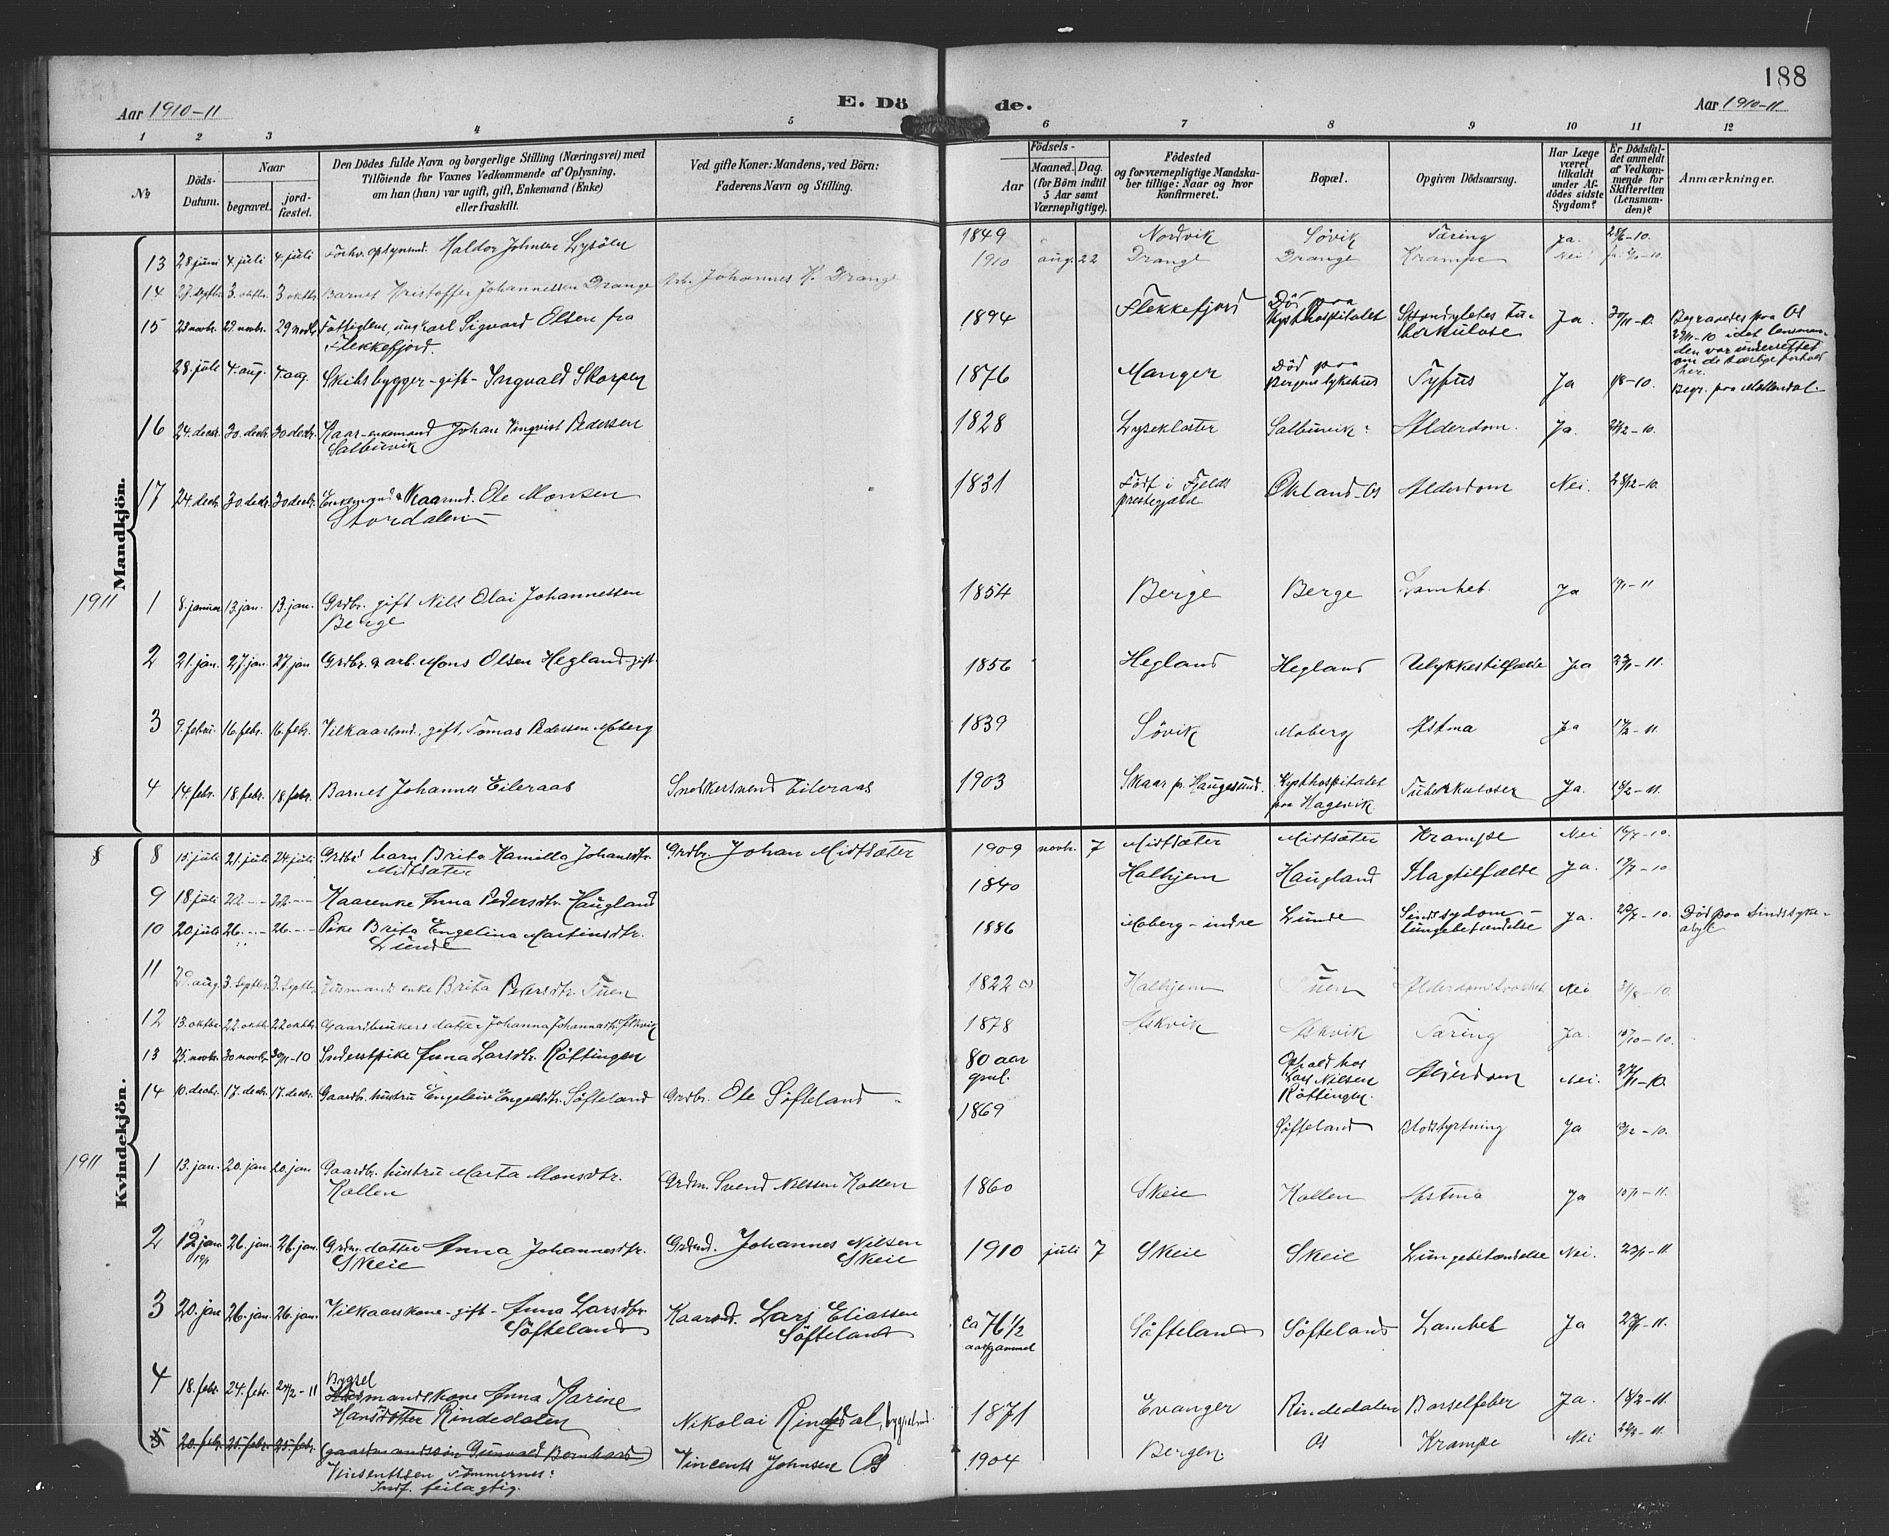 188
Aar 1910-11
E. Dö de.
Aar 1910-11
1 2 3 4 5 6 7 8 9 10 11 12
No
Döds-Datum.
Naar begravet. jordfæstet.
Den Dödes fulde Navn og borgerlige Stilling (Næringsvei) med Tilföiende for Voxnes Vedkommende af Oplysning, om han (hun) var ugift, gift, Enkemand (Enke) eller fraskilt.
Ved gifte Koner: Mandens, ved Börn: Faderens Navn og Stilling.
Födsels-
Aar
Maaned. Dag. (for Börn indtil 5 Aar samt Værnepligtige).
Födested og for værnepligtige Mandskaber tillige: Naar og hvor konfirmeret.
Bopæl.
Opgiven Dödsaarsag.
Har Læge været tilkaldt under Afdödes sidste Sygdom?
Er Dödsfaldet anmeldt af Vedkommende for Skifteretten (Lensmanden)?
Anmærkninger.
Mandkjön.
13 28 juni 4. juli 4. juli Forhv. opsynsmd. Haldor Johnsen Lysöen 1849 Nordvik Søvik Tæring Ja. 28/6-10.
14 27. septbr. 3. oktbr. 3 oktbr. Barnet Kristoffer Johannessen Drange Arb. Johannes K. Drange 1910 aug. 22 Drange Drange Krampe Nei
15 23 novbr. 29 novbr. 29 novbr. Fattiglem, ungkarl Sigvard Olsen fra Flekkefjord. 1894 Flekkefjord Död paa Kysthospitalet Spondyletes Tuberkulose Ja. 30/11-10. Begravedes paa Os 29/11-10 idet lensmanden var underrettet om de særlige forhold her.
28. juli 4. aug. 4. aug. Skibsbygger-gift- Ingvald Skorpen 1876 Manger Död paa Bergens sykehus Tyfus Ja 1/8-10. Begr. paa Møllendal.
16 24. decbr. 30. decbr. 30 decbr. Kaar-enkemand Johan Vinqvist Pedersen Salbuvik 1828 Lysekloster Salbuvik Alderdom. Ja.
17 24 decbr. 30 decbr. 30 decbr. Enkemand & Kaarmd. Ole Monsen Stordalen 1831 Født i Fjelds prestegjæld Økland-Os Alderdom Nei. 28/12-10.
1911
1 8. januar 13. jan. 13. jan. Grdbr. gift Nils Olai Johannessen Berge 1854 Berge Berge Lamhet. Ja
2 21. jan. 27. jan. 27. jan Grdbr. & arb. Mons Olsen Hegland-gift. 1856 Hegland Hegland Ulykkestilfælde Ja 23/1-11.
3 9. febru. 16. febr. 16. febr. Vilkaarmd. gift. Tomas Pedersen Moberg 1839 Søvik Moberg Astma Ja
4 14. febr. 18. febr. 18 febr. Barnet Johannes Eileraas Snedkersvend Eileraas 1903 Skaar pr. Haugesund. Kysthospitalet paa Hagevik Tuberkuloser Ja.
Kvindekjön.
8 8 15. juli 21. juli 24. juli Grdbr. barn Brita Kamilla Johansdtr. Midtsæter Grdbr. Johan Midtsæter 1909 novbr. 7 Midtsæter Midtsæter Krampe Nei
9 18 juli 22 22 Kaarenke Anna Pedersdtr. Haugland 1840 Halhjem Haugland Slagtilfælde Ja.
10 20 juli 26 26 Pike Brita Engelina Martinsdtr. Lunde 1886 Moberg-indre Lunde Sindssygdom-lungebetændelse Ja. Død paa Sindssykeasyl
11 aug. 3. septbr. 3. septbr. Husmands enke Brita Pedersdtr. Tuen 1822 Halhjem Tuen Alderdomssvakhet Nei
12 13. oktbr. 22. oktbr. 22 oktbr. Gaardbrukers datter Johanna Johannesdtr. Askvik 1878 Askvik Askvik Tæring Ja.
13 25. novbr. 30 novbr. 30/11-10 Inderstpike Anna Larsdtr. Röttingen 80 aar gml. Ophold hos Lars Nilsen Röttingen Alderdom Nei.
14 10. decbr. 17. decbr. 17. decbr. Gaardbr. hustru Engeleiv Engelsdtr. Söfteland Grdbr. Ole Söfteland 1869 Söfteland Blodstyrtning Ja
1911
1 13. jan. 20. jan 20. jan Gaardbr. hustru Marta Monsdtr. Kollen Grdm. Svend Nilssen Kollen 1860 Skeie Kollen Astma Ja
2 12 jan 26. jan. 26. jan. Grdm. datter Anna Johannesdtr. Skeie Grdmd. Johannes Nilsen Skeie 1910 juli 7 Skeie Skeie Lungebetændelse Nei. 23/1-11.
3 20. jan 26. jan. 26. jan. Vilkaarskone-gift- Anna Larsdtr. Söfteland Kaarmd. Lars Eliassen Söfteland ca 76 1/2 aar gammel Söfteland Söfteland Lamhet Ja
4 18. febr. 24. febr. 24/2-11 Bygsel Husmandskone Anna Karine Hansdatter Rindedalen Nikolai Rindedal, bygselmd. 1871 Evanger Rindedalen Barselfeber Ja. 18/2-11.
5 20. febr. 25. febr. 25. febr. (gaardmandssön Gunvald Bernhard) Vinsentsen Tømmernes: Indf. feilagtig. Vincents Johnsen Os 1904 Bergen Os Krampe Nei